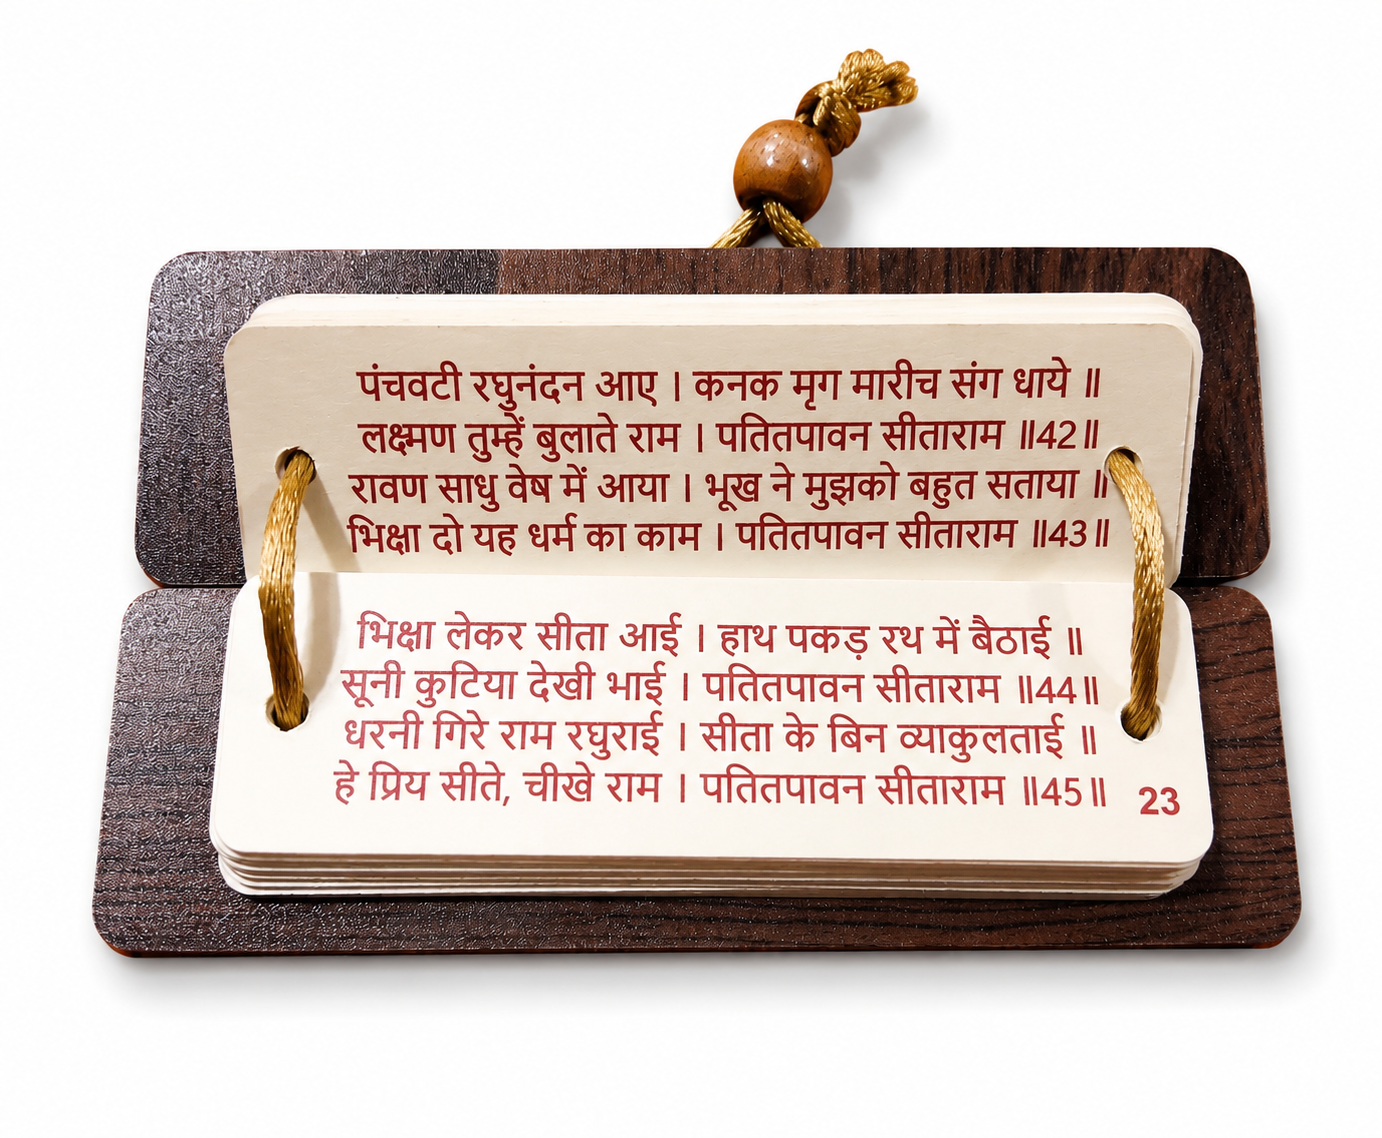 पंचवटी रघुनंदन आए । कनक मृग मारीच संग धाये ॥
लक्ष्मण तुम्हें बुलाते राम । पतितपावन सीताराम ॥42॥
रावण साधु वेष में आया । भूख ने मुझको बहुत सताया ॥
भिक्षा दो यह धर्म का काम । पतितपावन सीताराम ॥43॥
भिक्षा लेकर सीता आई । हाथ पकड़ रथ में बैठाई ॥
सूनी कुटिया देखी भाई । पतितपावन सीताराम ॥44॥
धरनी गिरे राम रघुराई । सीता के बिन व्याकुलताई ॥
हे प्रिय सीते, चीखे राम । पतितपावन सीताराम ॥45॥
23